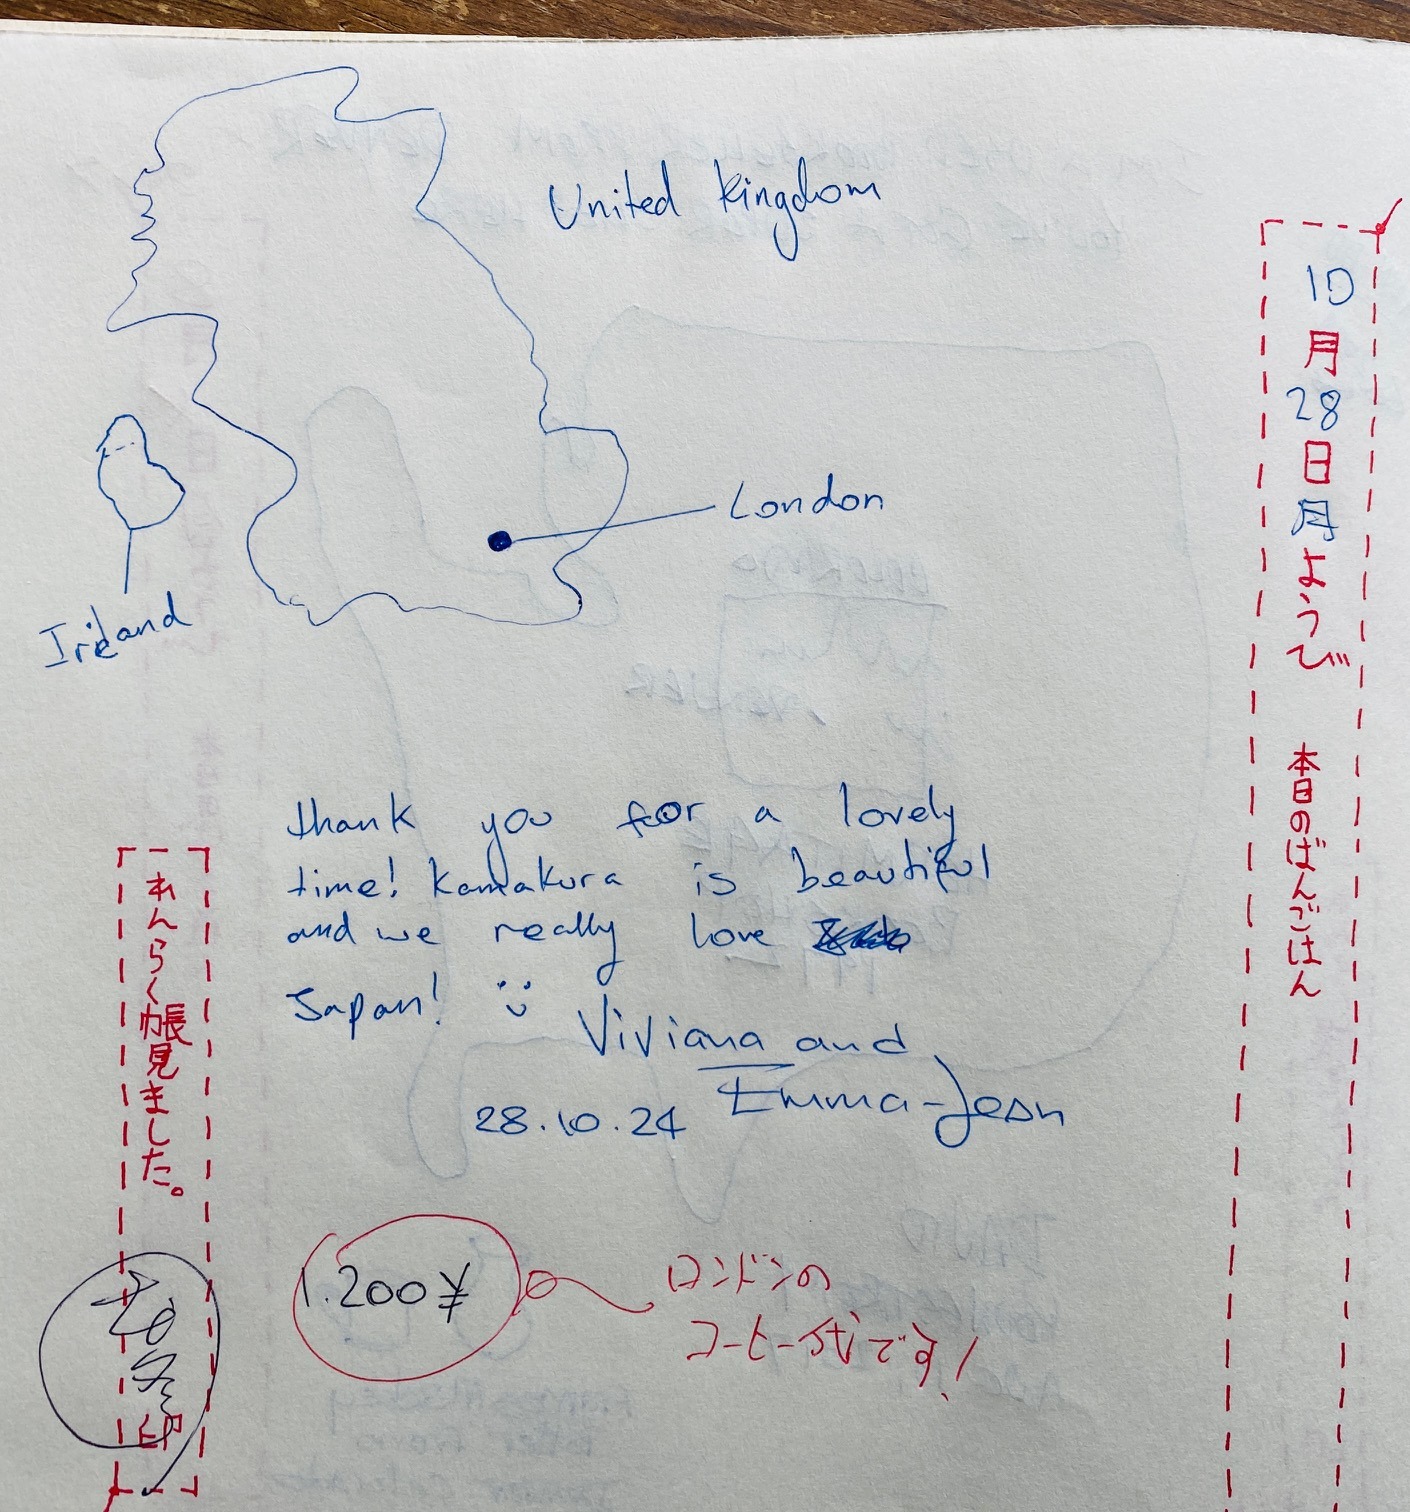 United Kingdom
London
Ireland
thank you for a lovely
time! Kamakura is beautiful
and we really love
Japan!
Viviana and
Emma-Jean
28.10.24
1.200¥
ロンドンの
コーヒー代です!
10月28日月ようび 本日のばんごはん
れんらく帳見ました。
印